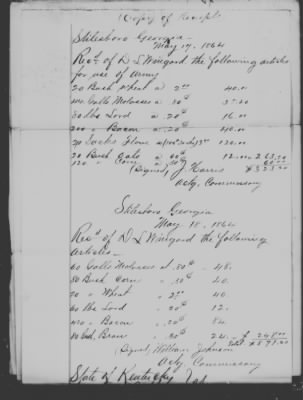 (Copy of Receipt)
Stilesboro Georgia
May 17. 1864
Recd of D L Wingard the following articles
for use of army
20 Bush Wheat a 2 00 40.00
Galls Molasses a 80c
80 lbs Lard a 20c 16.00
200 " Bacon a 20c 40.00
20 Sacks Flour 120.00
20 Bush Oats a 60c 12.00 263.20
120 " Corn a 50 60.00
(Signed) J. Harris $323.20
Actg. Commissary
Stilesboro Georgia
May 18. 1864
Recd of D L Wingard the following
Articles
60 Galls Molasses at .80c - 48.
80 Bush Corn " .50c 40.
20 " Wheat " 2 00 40.
60 lbs Lard " .20c 12.
" Bacon " .20c 84.
Bush, Bran " .30c 24. - $ 248.00
(Signed) William Johnson Total
Actg. Commissary
State of Kentucky